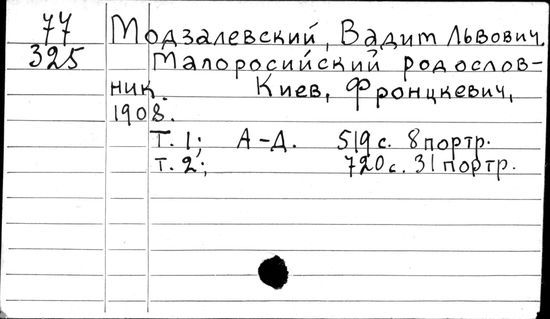 77
325
Модзалевский, Вадим Львович.
Малоросийский родослов-
ник. Киев, Фронцкевич,
1908.
Т. 1; А-Д. 519 с. 8 портр.
Т. 2; 720 с. 31 портр.